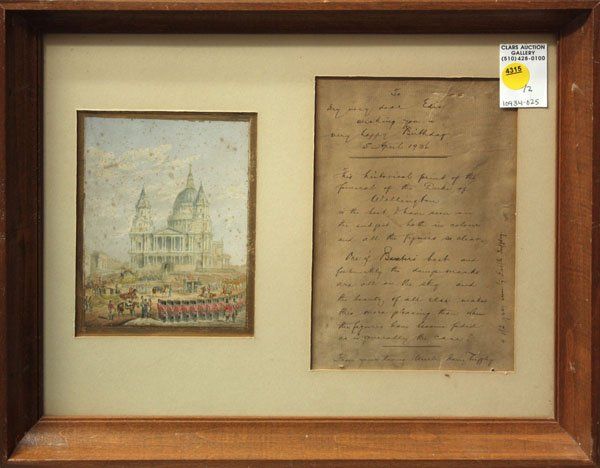 CLARS AUCTION
GALLERY
(510) 428-0100
4315
/2
10934-025
To
My very dear Elsie
wishing you a
very happy Birthday
5 April 1936
This historical print of the
funeral of the Duke of
Wellington
is the best I have seen on
the subject both in colour
and all the figures so clear.
One of Baxter's best and
fortunately the damp marks
are all in the sky and
the beauty of all else makes
this more pleasing than when
the figures have become faded
as is generally the case.
From your loving Uncle Harry